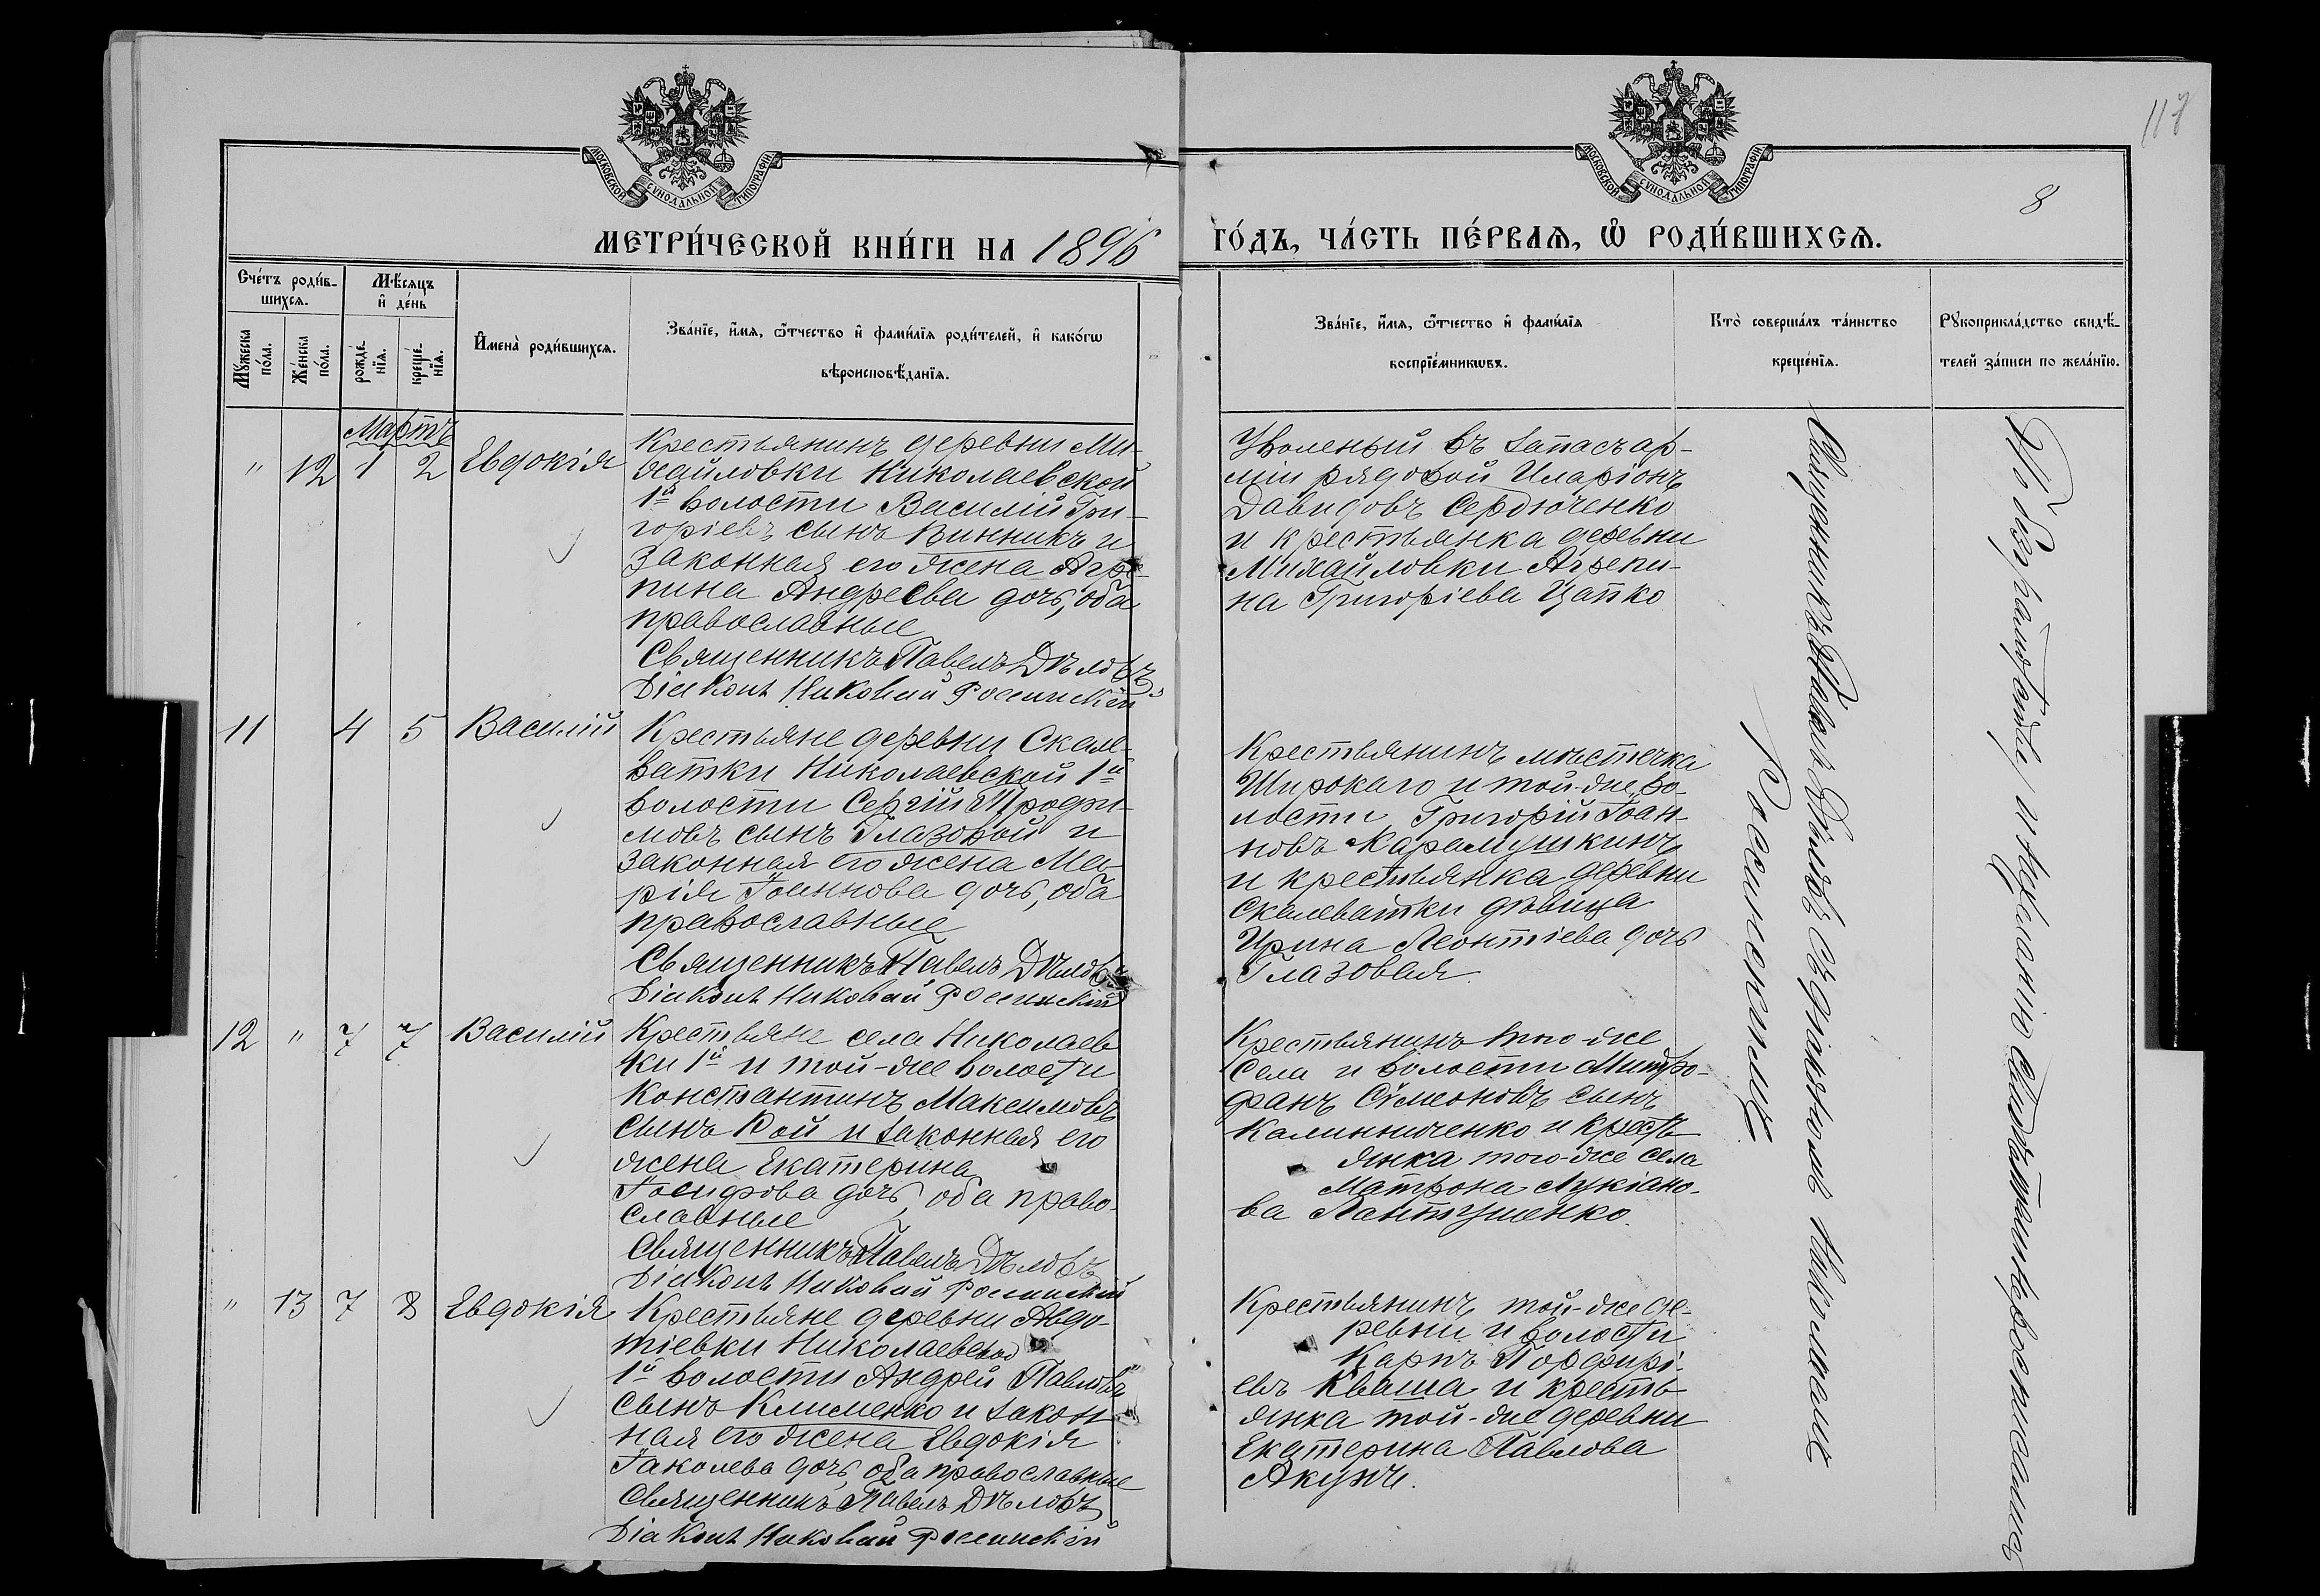 117
МОСКОВСКОЙ СѴНОДАЛЬНОЙ ТИПОГРАФІИ
МОСКОВСКОЙ СѴНОДАЛЬНОЙ ТИПОГРАФІИ
8
МЕТРИ́ЧЕСКОЙ КНИ́ГИ НА 1896 ГО́ДЪ, ЧА́СТЬ ПЕ́РВАѦ, Ѽ РОДИ́ВШИХСѦ.
Сче́тъ роди́в-
шихсѧ.
Мѣ́сѧцъ
и҆ де́нь
Мꙋ́жеска
по́ла.
Же́нска
по́ла.
рожде́-
нїѧ.
креще́-
нїѧ.
И҆мена̀ роди́вшихсѧ.
Зва́нїе, и҆́мѧ, ѻ҆́тчество и҆ фами́лїѧ роди́телей, и҆ како́гѡ
вѣроисповѣ́данїѧ.
Зва́нїе, и҆́мѧ, ѻ҆́тчество и҆ фами́лїѧ
воспрїе́мникѡвъ.
Кто̀ соверша́лъ та́инство
креще́нїѧ.
Рꙋкоприкла́дство свидѣ́-
телей за́писи по жела́нїю.
Мартъ
" 12 1 2 Евдокія
Крестьянинъ деревни Ми-
хайловки Николаевской
1й волости Василій Гри-
горіевъ сынъ Винникъ и
законная его жена Агре-
пина Андреева дочь, оба
православные
Священникъ Павелъ Дѣловъ
Діаконъ Николай Россинскій
Уволенный въ запасъ ар-
міи рядовой Иларіонъ
Давидовъ Сердюченко
и крестьянка деревни
Михайловки Агрепи-
на Григоріева Цапко
11 4 5 Василій
Крестьяне деревни Скале-
ватки Николаевской 1й
волости Сергій Трофи-
мовъ сынъ Глазовой и
законная его жена Ма-
рія Іоаннова дочь, оба
православные
Священникъ Павелъ Дѣловъ
Діаконъ Николай Россинскій
Крестьянинъ мѣстечка
Широкаго и той-же во-
лости Григорій Іоан-
новъ Карамушкинъ
и крестьянка деревни
Скалеватки дѣвица
Ирина Леонтіева дочь
Глазовая.
12 " 7 7 Василій
Крестьяне села Николаев
ки 1й и той-же волости
Константинъ Максимовъ
сынъ Кой и законная его
жена Екатерина
Іосифова дочь, оба право-
славные
Священникъ Павелъ Дѣловъ
Діаконъ Николай Россинскій
Крестьянинъ того-же
села и волости Митро-
фанъ Сѵмеоновъ сынъ
Калинниченко и кресть
янка того-же села
Матрона Лукіано-
ва Лантушенко.
" 13 7 8 Евдокія
Крестьяне деревни Авдо-
тіевки Николаевской
1й волости Андрей Павловъ
сынъ Клименко и закон
ная его жена Евдокія
Іаковлева дочь, оба православные
Священникъ Павелъ Дѣловъ
Діаконъ Николай Россинскій
Крестьянинъ той-же де-
ревни и волости
Карпъ Порфирі-
евъ Кваша и кресть
янка той-же деревни
Екатерина Павлова
Акунъ.
Священникъ Павелъ Дѣловъ съ діакономъ Николаемъ
Россинскимъ